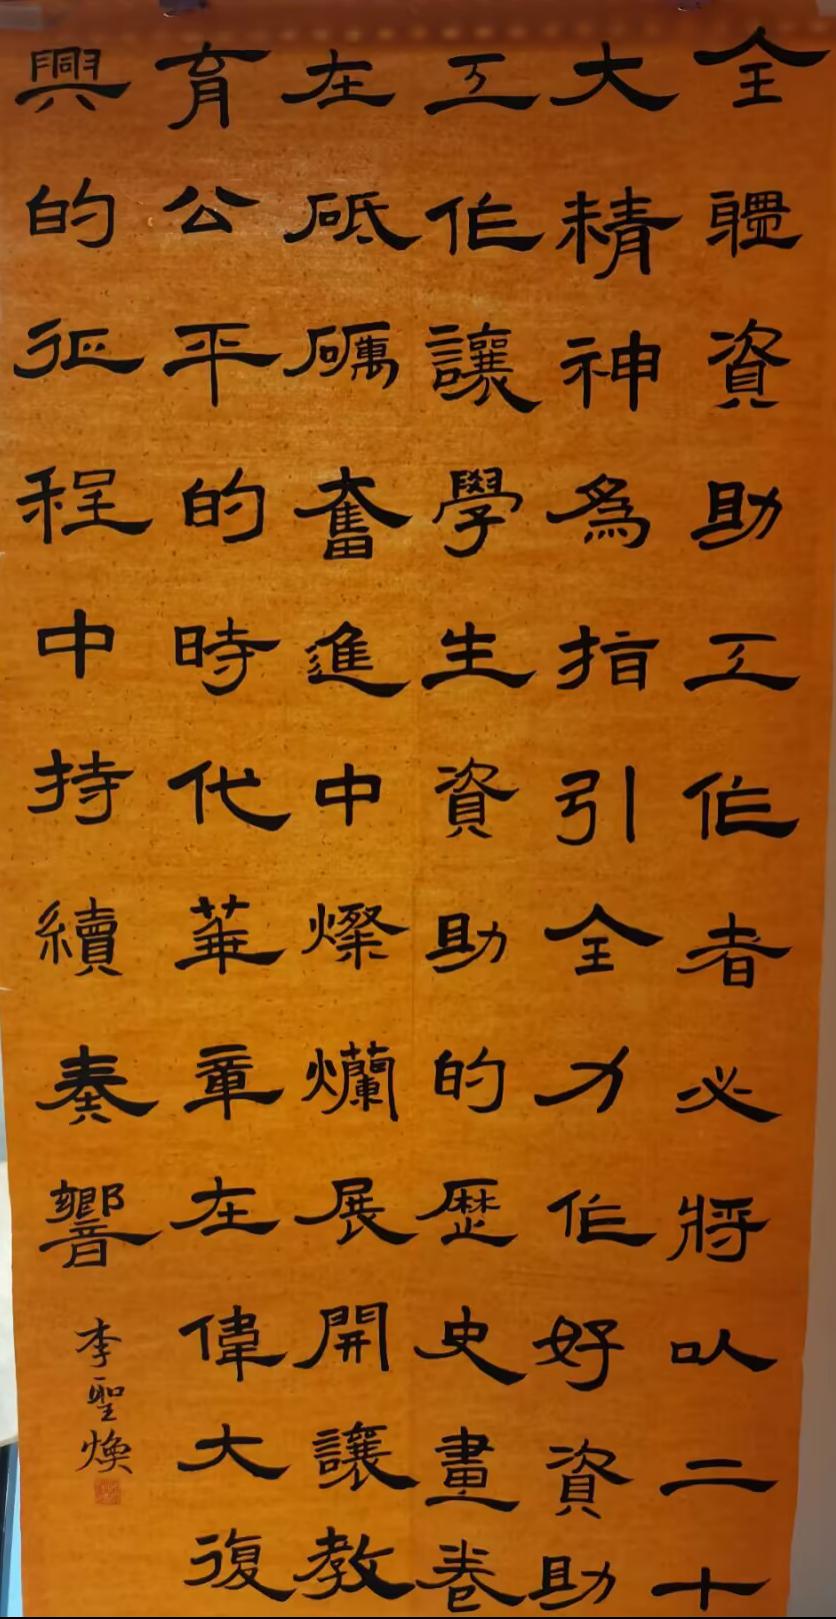 全疆資助工作者必將以二十
大精神為指引全力作好資助
工作讓學生資助的歷史畫卷
在砥礪奮進中燦爛展開讓教
育公平的時代華章在偉大復
興的征程中持續奏響
李聖煥